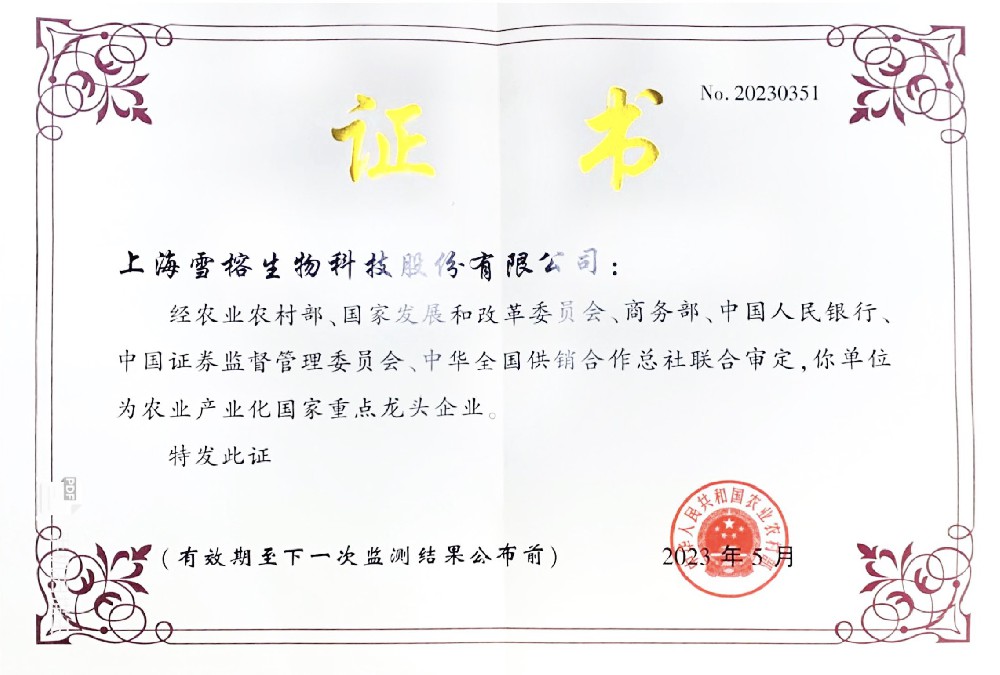 No. 20230351
证书
上海雪榕生物科技股份有限公司：
经农业农村部、国家发展和改革委员会、商务部、中国人民银行、
中国证券监督管理委员会、中华全国供销合作总社联合审定，你单位
为农业产业化国家重点龙头企业。
特发此证
PDF
中华人民共和国农业农村部
（有效期至下一次监测结果公布前）
2023 年 5 月